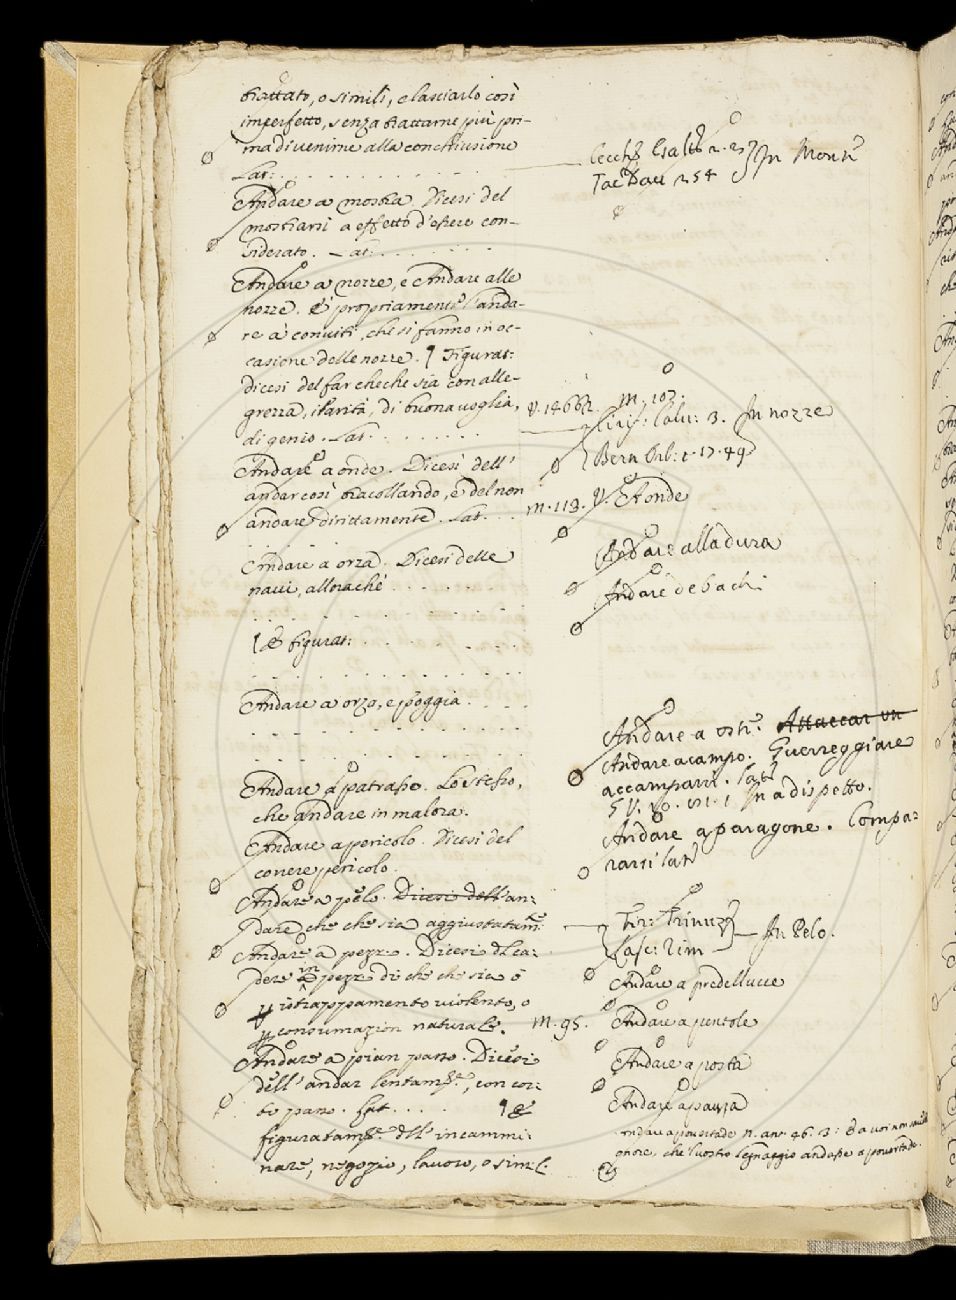 trattato, o simili, e lasciarlo così
imperfetto, senza trattarne più pri-
ma di venirne alla conchiusione
Lat: . . . . . . . . . . . .
Andare a mostra Dicesi del
mostrarsi a effetto d'essere con-
siderato. Lat: . . . . . . .
Andare a nozze, e Andare alle
nozze. È propriamente l'anda-
re a' conviti, che si fanno in oc-
casione delle nozze. ¶ Figurat:
dicesi del far checche sia con alle-
grezza, ilarità, di buona voglia,
di genio. Lat. . . . . . . .
Andare a onde. Dicesi dell'
andar così tracollando, e del non
andare dirittamente. Lat. . . .
Andare a orza. Dicesi delle
navi, allorachè . . . . . . .
¶ E figurat: . . . . . . .
Andare a orzo, e poggia . . . .
Andare a patrasso. Lo stesso,
che andare in malora.
Andare a pericolo. Dicesi del
correre pericolo.
Andare a pelo. Dicesi dell' an-
dare che che sia aggiustatam.e
Andare a pezzi. Dicesi di ca-
dere in pezzi di che che sia o
p istrappamento violento, o
p consumazion naturale.
Andare a pian passo. Dicesi
dell' andar lentam.e, con cor-
to passo. Lat. . . . . ¶ E
figuratam.e dell' incammi-
nare, negozio, lavoro, o simil.
2. 27 In Mostr
254
v. 146
M. 103.
Cirif: Calv: 3. In nozze
Bern Orl: 1. 17. 49
M. 113. V. A onde
Andare alla dura
Andare de bachi
Andare a oste. Attaccar un
Andare a campo. Guerreggiare
accamparsi. Lat
In a dispetto.
Andare a paragone. Compa-
rarsi lat
Fir: Trinuz
Lasc: rim
In Pelo.
Andare a predellucce
M. 95. Andare a pentole
Andare a posta
Andare apausa
andare a povertade
onore, che l'vostro legnaggio andasse a povertade.